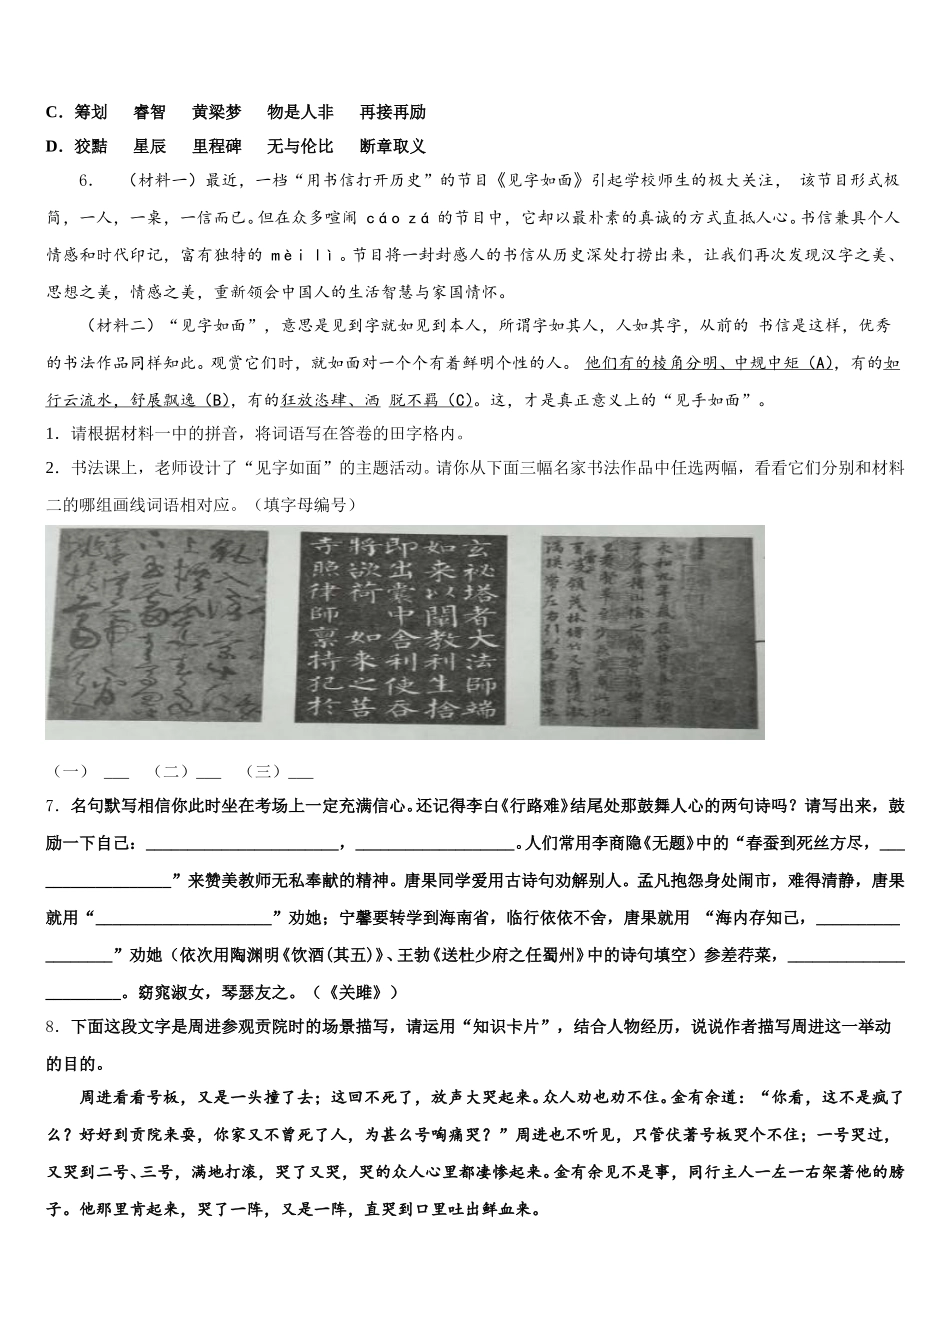 C．筹划 睿智 黄梁梦 物是人非 再接再励
D．狡黠 星辰 里程碑 无与伦比 断章取义
6． （材料一）最近，一档“用书信打开历史”的节目《见字如面》引起学校师生的极大关注， 该节目形式极
简，一人，一桌，一信而已。但在众多喧闹 cáo zá 的节目中，它却以最朴素的真诚的方式直抵人心。书信兼具个人
情感和时代印记，富有独特的 mèi lì 。节目将一封封感人的书信从历史深处打捞出来，让我们再次发现汉字之美、
思想之美，情感之美，重新领会中国人的生活智慧与家国情怀。
（材料二）“见字如面”，意思是见到字就如见到本人，所谓字如其人，人如其字，从前的 书信是这样，优秀
的书法作品同样知此。观赏它们时，就如面对一个个有着鲜明个性的人。 他们有的棱角分明、中规中矩（A），有的如
行云流水，舒展飘逸（B），有的狂放恣肆、洒 脱不羁（C）。这，才是真正意义上的“见手如面”。
1．请根据材料一中的拼音，将词语写在答卷的田字格内。
2．书法课上，老师设计了“见字如面”的主题活动。请你从下面三幅名家书法作品中任选两幅，看看它们分别和材料
二的哪组画线词语相对应。（填字母编号）
玄秘塔者大法师端
如来以闡教利生捨
即出囊中舍利使吞
將欲荷 如来之菩
寺照律師禀持犯於
（一） ___ （二）___ （三）___
7．名句默写相信你此时坐在考场上一定充满信心。还记得李白《行路难》结尾处那鼓舞人心的两句诗吗？请写出来，鼓
励一下自己：_______________________，___________________。人们常用李商隐《无题》中的“春蚕到死丝方尽，___
_______________”来赞美教师无私奉献的精神。唐果同学爱用古诗句劝解别人。孟凡抱怨身处闹市，难得清静，唐果
就用“_____________________”劝她；宁馨要转学到海南省，临行依依不舍，唐果就用 “海内存知己，__________
________”劝她（依次用陶渊明《饮酒(其五)》、王勃《送杜少府之任蜀州》中的诗句填空）参差荇菜，______________
_________。窈窕淑女，琴瑟友之。（《关雎》）
8．下面这段文字是周进参观贡院时的场景描写，请运用“知识卡片”，结合人物经历，说说作者描写周进这一举动
的目的。
周进看看号板，又是一头撞了去；这回不死了，放声大哭起来。众人劝也劝不住。金有余道：“你看，这不是疯了
么？好好到贡院来耍，你家又不曾死了人，为甚么号啕痛哭？”周进也不听见，只管伏著号板哭个不住；一号哭过，
又哭到二号、三号，满地打滚，哭了又哭，哭的众人心里都凄惨起来。金有余见不是事，同行主人一左一右架著他的膀
子。他那里肯起来，哭了一阵，又是一阵，直哭到口里吐出鲜血来。